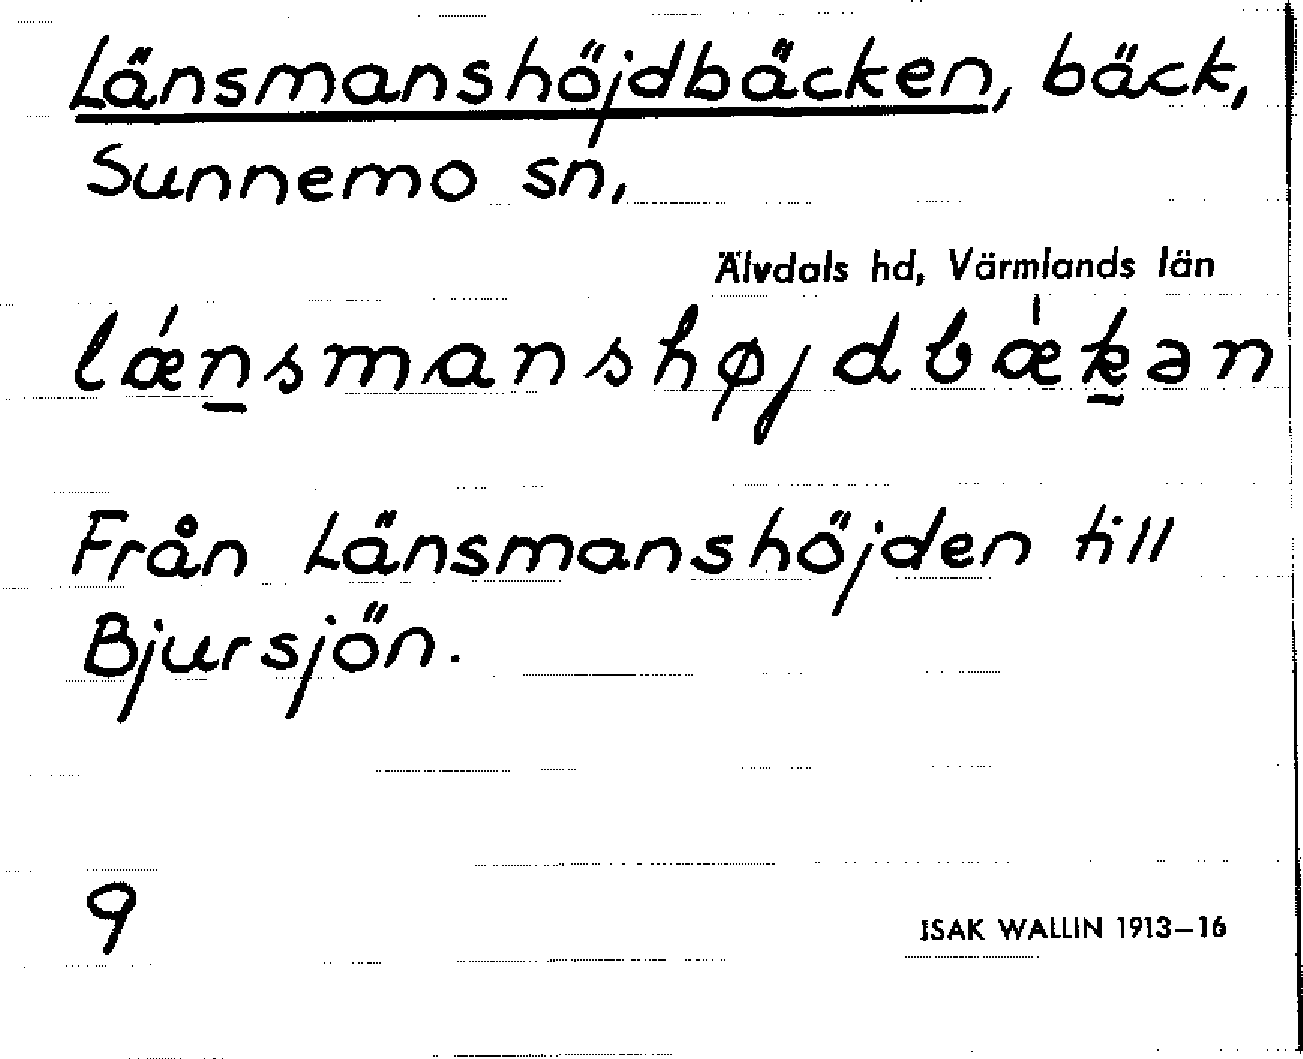 Länsmanshöjdbäcken, bäck,
Sunnemo sn,
Älvdals hd, Värmlands län
lǽn̲smanshøjdbæ̍k̲ən
Från Länsmanshöjden till
Bjursjön.
9
ISAK WALLIN 1913–16